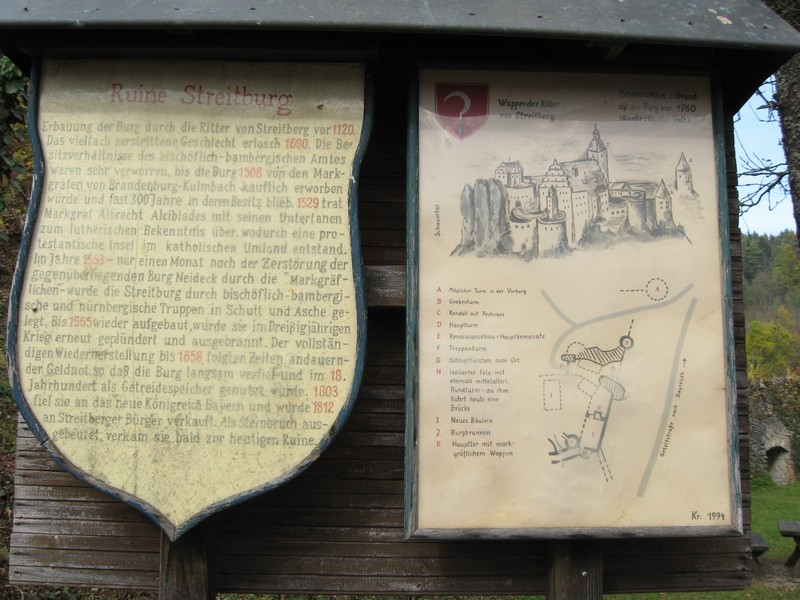 Ruine Streitburg
Erbauung der Burg durch die Ritter von Streitberg vor 1120.
Das vielfach zerstrittene Geschlecht erlosch 1690. Die Be-
sitzverhältnisse des bischöflich-bambergischen Amtes
waren sehr verworren, bis die Burg 1508 von den Mark-
grafen von Brandenburg-Kulmbach käuflich erworben
wurde und fast 300 Jahre in deren Besitz blieb. 1529 trat
Markgraf Albrecht Alcibiades mit seinen Untertanen
zum lutherischen Bekenntnis über, wodurch eine pro-
testantische Insel im katholischen Umland entstand.
Im Jahre 1553 - nur einen Monat nach der Zerstörung der
gegenüberliegenden Burg Neideck durch die "Markgräf-
lichen - wurde die Streitburg durch bischöflich-bambergi-
sche und nürnbergische Truppen in Schutt und Asche ge-
legt. Bis 1565 wieder aufgebaut, wurde sie im Dreißigjährigen
Krieg erneut geplündert und ausgebrannt. Der vollstän-
digen Wiederherstellung bis 1658 folgten Zeiten andauern-
der Geldnot, so daß die Burg langsam verfiel und im 18.
Jahrhundert als Getreidespeicher genutzt wurde. 1803
fiel sie an das neue Königreich Bayern und wurde 1812
an Streitberger Bürger verkauft. Als Steinbruch aus-
gebeutet, verkam sie bald zur heutigen Ruine.
Wappen der Ritter
von Streitberg
Rekonstruktion u. Grund-
riß der Burg um 1760
Schauertal
A Möglicher Turm in der Vorburg
B Grabenturm
C Rondell mit Pechnase
D Hauptturm
E Renaissancebau - Hauptkemenate
F Treppenturm
G Schlupftürchen zum Ort
H Isolierter Fels mit
ehemals mittelalterl.
Rundturm - zu ihm
führt heute eine
Brücke
I Neues Bäulein
J Burgbrunnen
K Haupttor mit mark-
gräflichem Wappen
A
Geleitstraße nach Bayreuth
Kr. 1994